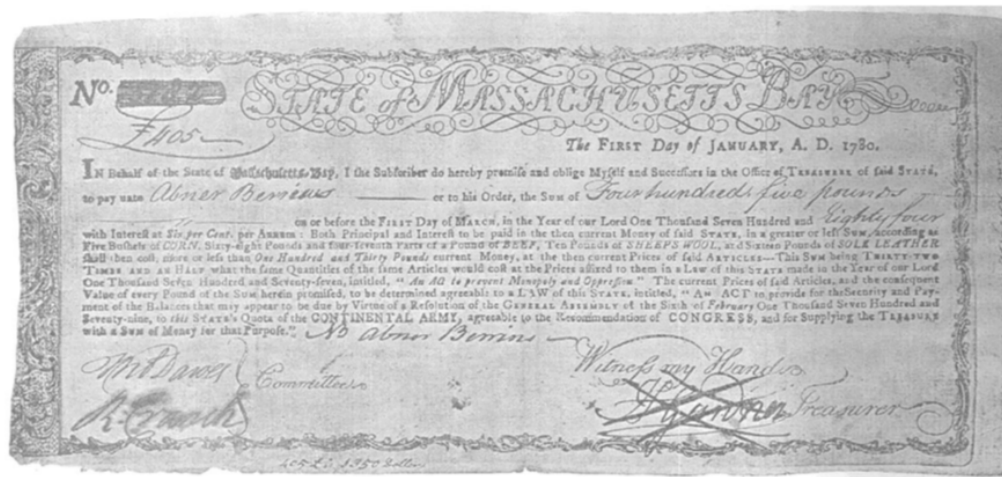 No.
STATE of MASSACHUSETTS BAY
£405
The FIRST Day of JANUARY, A. D. 1780.
IN Behalf of the State of Massachusetts-Bay, I the Subscriber do hereby promise and oblige Myself and Successors in the Office of TREASURER of said STATE,
to pay unto Abner Berrines or to his Order, the Sum of Four hundred & five pounds
on or before the FIRST Day of MARCH, in the Year of our Lord One Thousand Seven Hundred and Eighty four
with Interest at Six per Cent. per ANNUM: Both Principal and Interest to be paid in the then current Money of said STATE, in a greater or less SUM, according as
Five Bushels of CORN, Sixty-eight Pounds and four-seventh Parts of a Pound of BEEF, Ten Pounds of SHEEPS WOOL, and Sixteen Pounds of SOLE LEATHER
shall then cost, more or less than One Hundred and Thirty Pounds current Money, at the then current Prices of said ARTICLES—This SUM being THIRTY-TWO
TIMES AND AN HALF what the same Quantities of the same Articles would cost at the Prices affixed to them in a Law of this STATE made in the Year of our Lord
One Thousand Seven Hundred and Seventy-seven, intitled, "An Act to prevent Monopoly and Oppression." The current Prices of said Articles, and the consequent
Value of every Pound of the Sum herein promised, to be determined agreeable to a LAW of this STATE, intitled, "An ACT to provide for the Security and Pay-
ment of the Balances that may appear to be due by Virtue of a Resolution of the GENERAL ASSEMBLY of the Sixth of February One Thousand Seven Hundred and
Seventy-nine, to this STATE's Quota of the CONTINENTAL ARMY, agreeable to the Recommendation of CONGRESS, and for Supplying the TREASURY
with a SUM of Money for that Purpose." Abner Berrines
Witness my Hand
Dawes
Committee
R Cranch
Treasurer